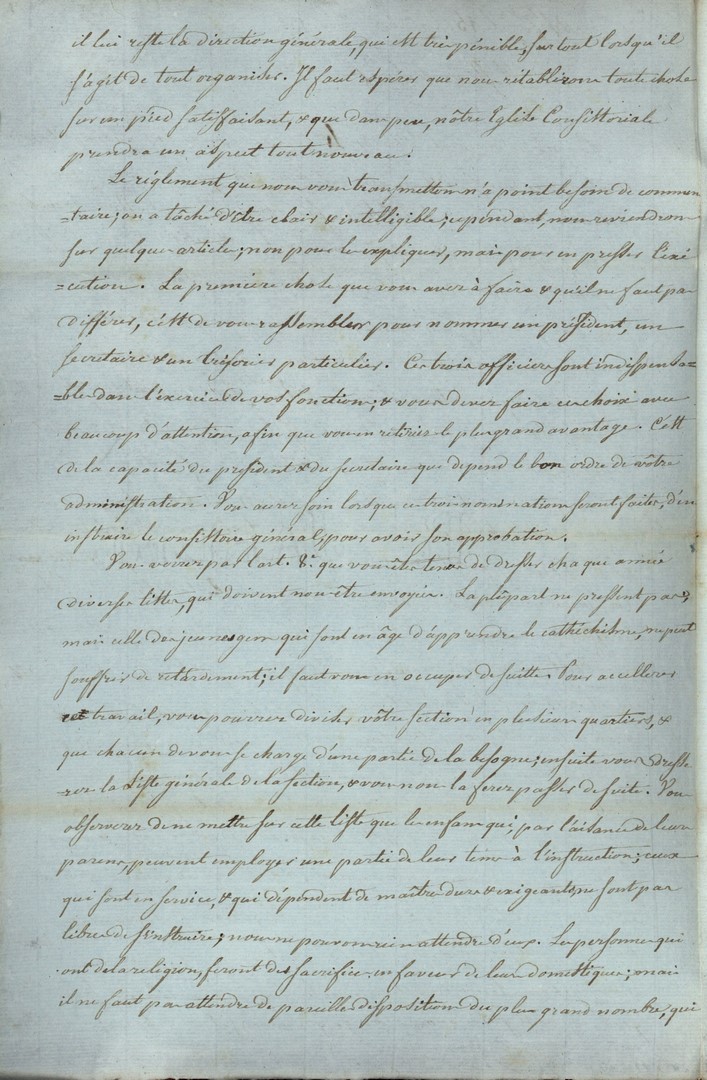 il lui reste la direction générale, qui est très pénible, surtout lorsqu'il
s'agit de tout organiser. Il faut espérer que nous rétablirons toute chose
sur un pied satisfaisant, & que dans peu, nôtre Eglise Consistoriale
prendra un aspect tout nouveau.
Le réglement que nous vous transmettons n'a point besoin de commen
=taire; on a tâché d'être clair & intelligible; cependant, nous reviendrons
sur quelques articles; non pour les expliquer, mais pour en presser l'exé
=cution. La premiere chose que vous avez à faire & qu'il ne faut pas
différer, c'est de vous rassembler pour nommer un président, un
secretaire & un trésorier particulier. Ces trois officiers sont indispensa=
=bles dans l'exercice de vos fonctions; & vous devez faire ce choix avec
beaucoup d'attention, afin que vous en retiriez le plus grand avantage. C'est
de la capacité du président & du secretaire que depend le bon ordre de vôtre
administration. Vous aurez soin lorsque ces trois nominations seront faites, d'en
instruire le consistoire général, pour avoir son approbation.
Vous verrez par l'art. 8. que vous êtes tenus de dresser chaque année
diverses listes, qui doivent nous être envoyées. La plûpart ne pressent pas;
mais celle des jeunes gens qui sont en âge d'apprendre le cathéchisme, ne peut
souffrir de retardement; il faut vous en occuper de suitte. Pour accellerer
cet travail, vous pourrez diviser vôtre section en plusieurs quartiers, &
que chacun de vous se charge d'une partie de la besogne; ensuite vous dresse
=rez la Liste générale de la section, & vous nous la ferez passer de suite. Vous
observerez de ne mettre sur cette liste que les enfans qui, par l'aisance de leurs
parens, peuvent employer une partie de leur tems à l'instruction; ceux
qui sont en service, & qui dépendent de maîtres durs & exigeants ne sont pas
libres de s'instruire; nous ne pouvons rien attendre d'eux. Les personnes qui
ont de la religion, feront des sacrifices en faveur de leurs domestiques; mais
il ne faut pas attendre de pareilles dispositions du plus grand nombre, qui